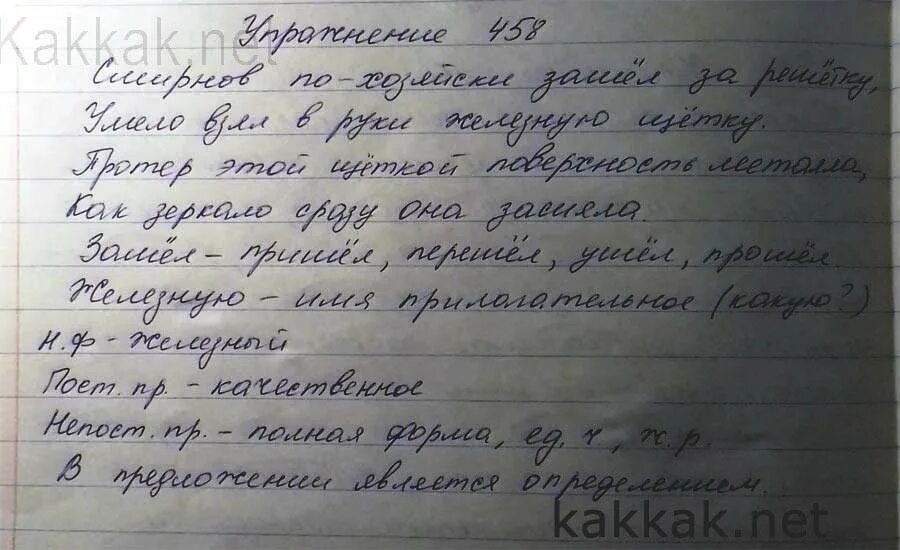 Kakkak.net
Упражнение 458
Смирнов по-хозяйски зашёл за решётку,
Умело взял в руки железную щётку.
Протер этой щёткой поверхность металла,
Как зеркало сразу она засияла.
Зашёл – пришёл, перешёл, ушёл, прошёл.
Железную – имя прилагательное (какую?)
Н.ф – железный
Пост. пр. – качественное
Непост. пр. – полная форма, ед. ч, ж. р.
В предложении является определением.
kakkak.net